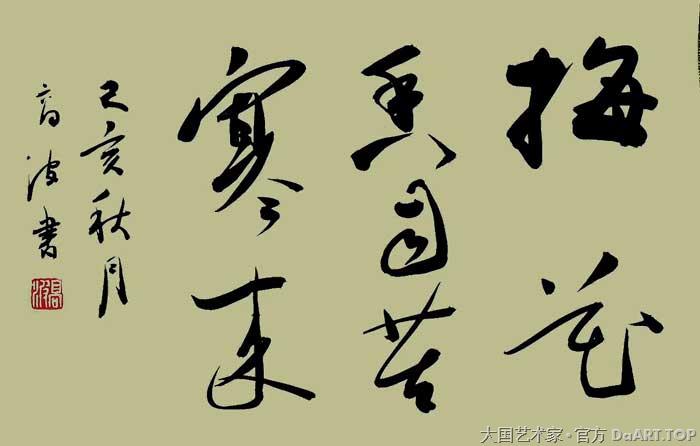 梅花
香自苦
寒来
己亥秋月
高波书
高波
大国艺术家·官方 DaART.TOP